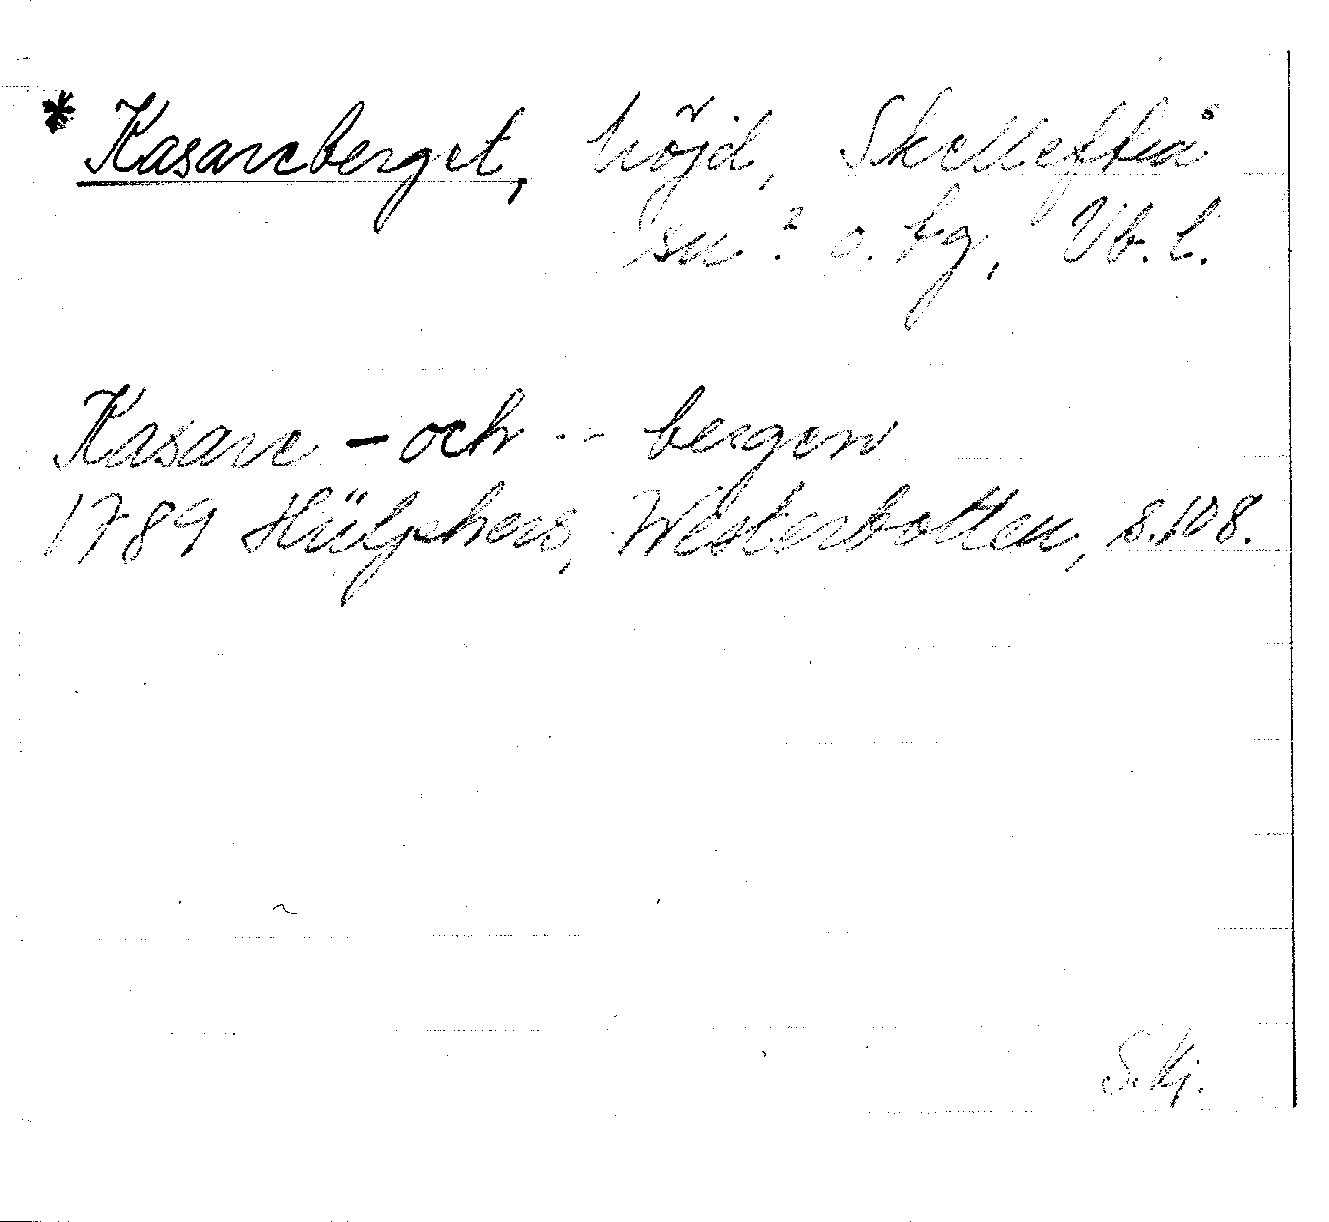 * Kasareberget, höjd, Skellefteå
sn? o. tg, Vb. l.
Kasare – och -- bergen
1789 Hülphers, Westerbotten, s. 108.
S. Kj.